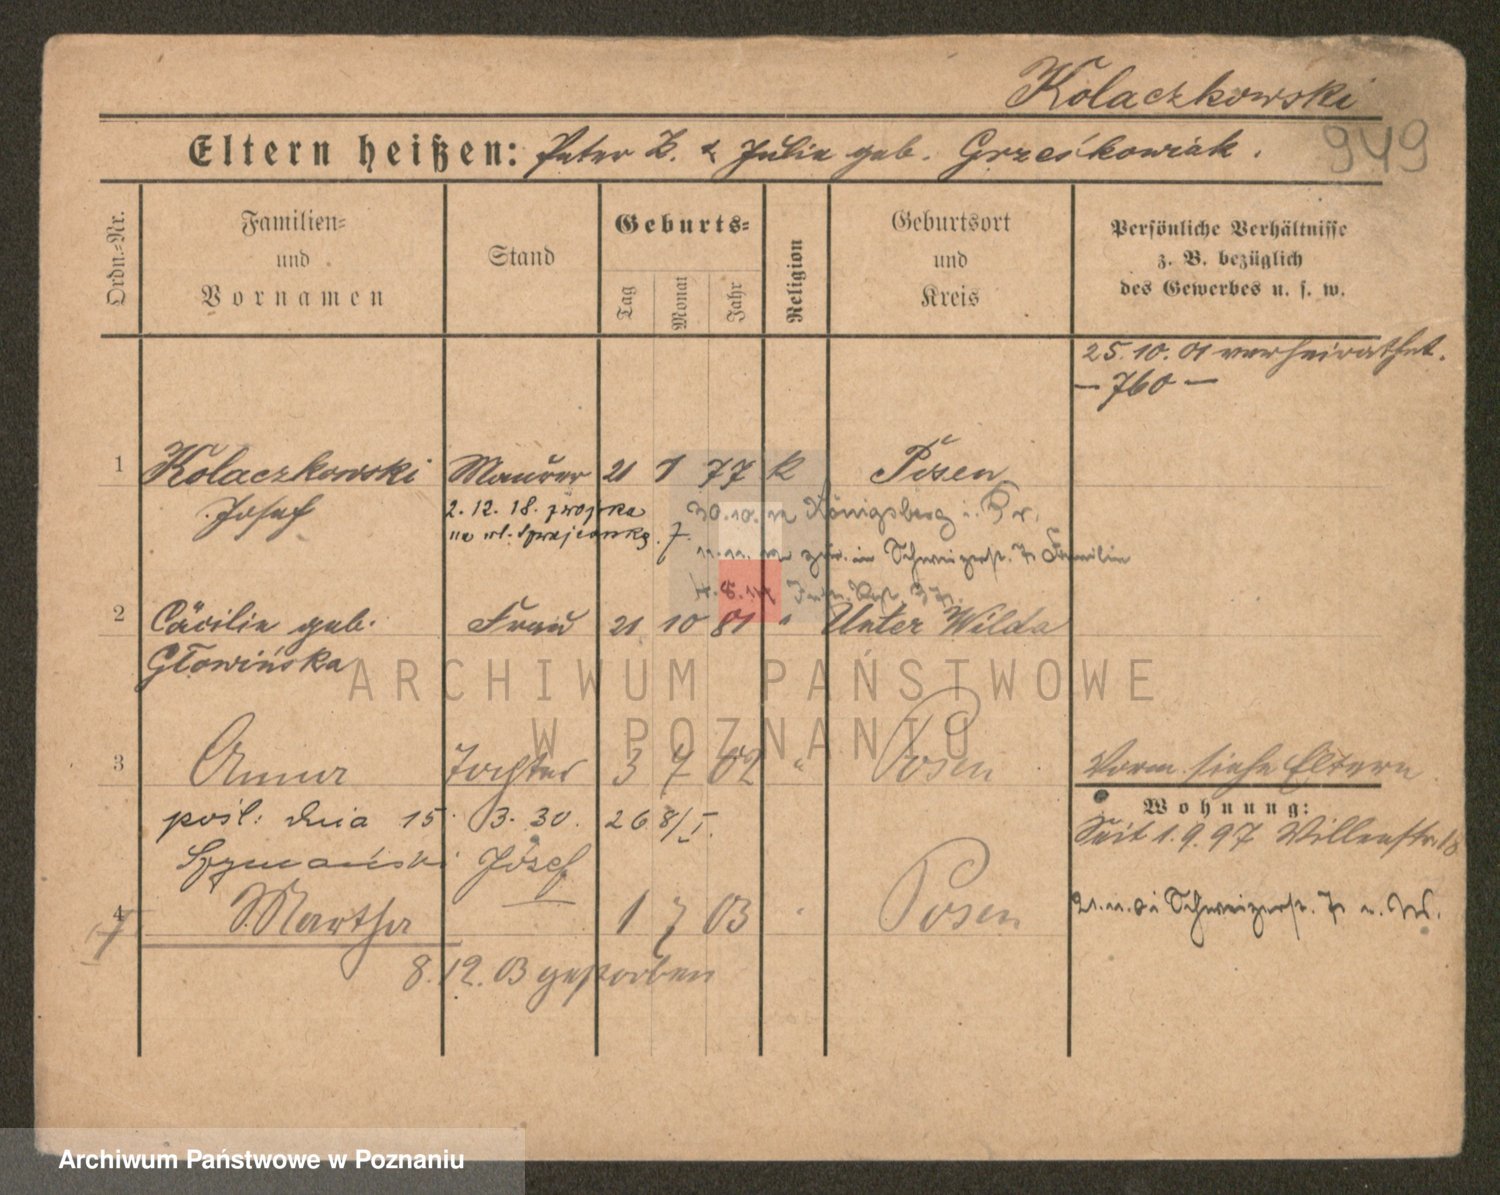 Kolaczkowski
949
Eltern heißen: Peter K. & Julie geb. Grześkowiak.
Ordn.-Nr.
Familien- und Vornamen
Stand
Geburts-
Tag
Monat
Jahr
Religion
Geburtsort und Kreis
Persönliche Verhältnisse
z. B. bezüglich
des Gewerbes u. s. w.
25.10.01 verheirathet.
— 760 —
1 Kolaczkowski Maurer 21 77 k Posen
Josef
2. 12. 18.
30.10. Königsberg i. Pr.
Schweizerstr. 7 Familie
2 Cäcilie geb. Frau 21 10 81 " Unter Wilda
Głowińska
3 Anna Tochter 3 7 02 " Posen
Vorm. siehe Eltern
pośl. dnia 15. 3. 30. 268/I.
Szymański Józef
Wohnung:
Seit 1.9.97
4 Martha 1 7 03 " Posen
Schweizerstr. 7
8.12.03 gestorben
ARCHIWUM PAŃSTWOWE
W POZNANIU
Archiwum Państwowe w Poznaniu